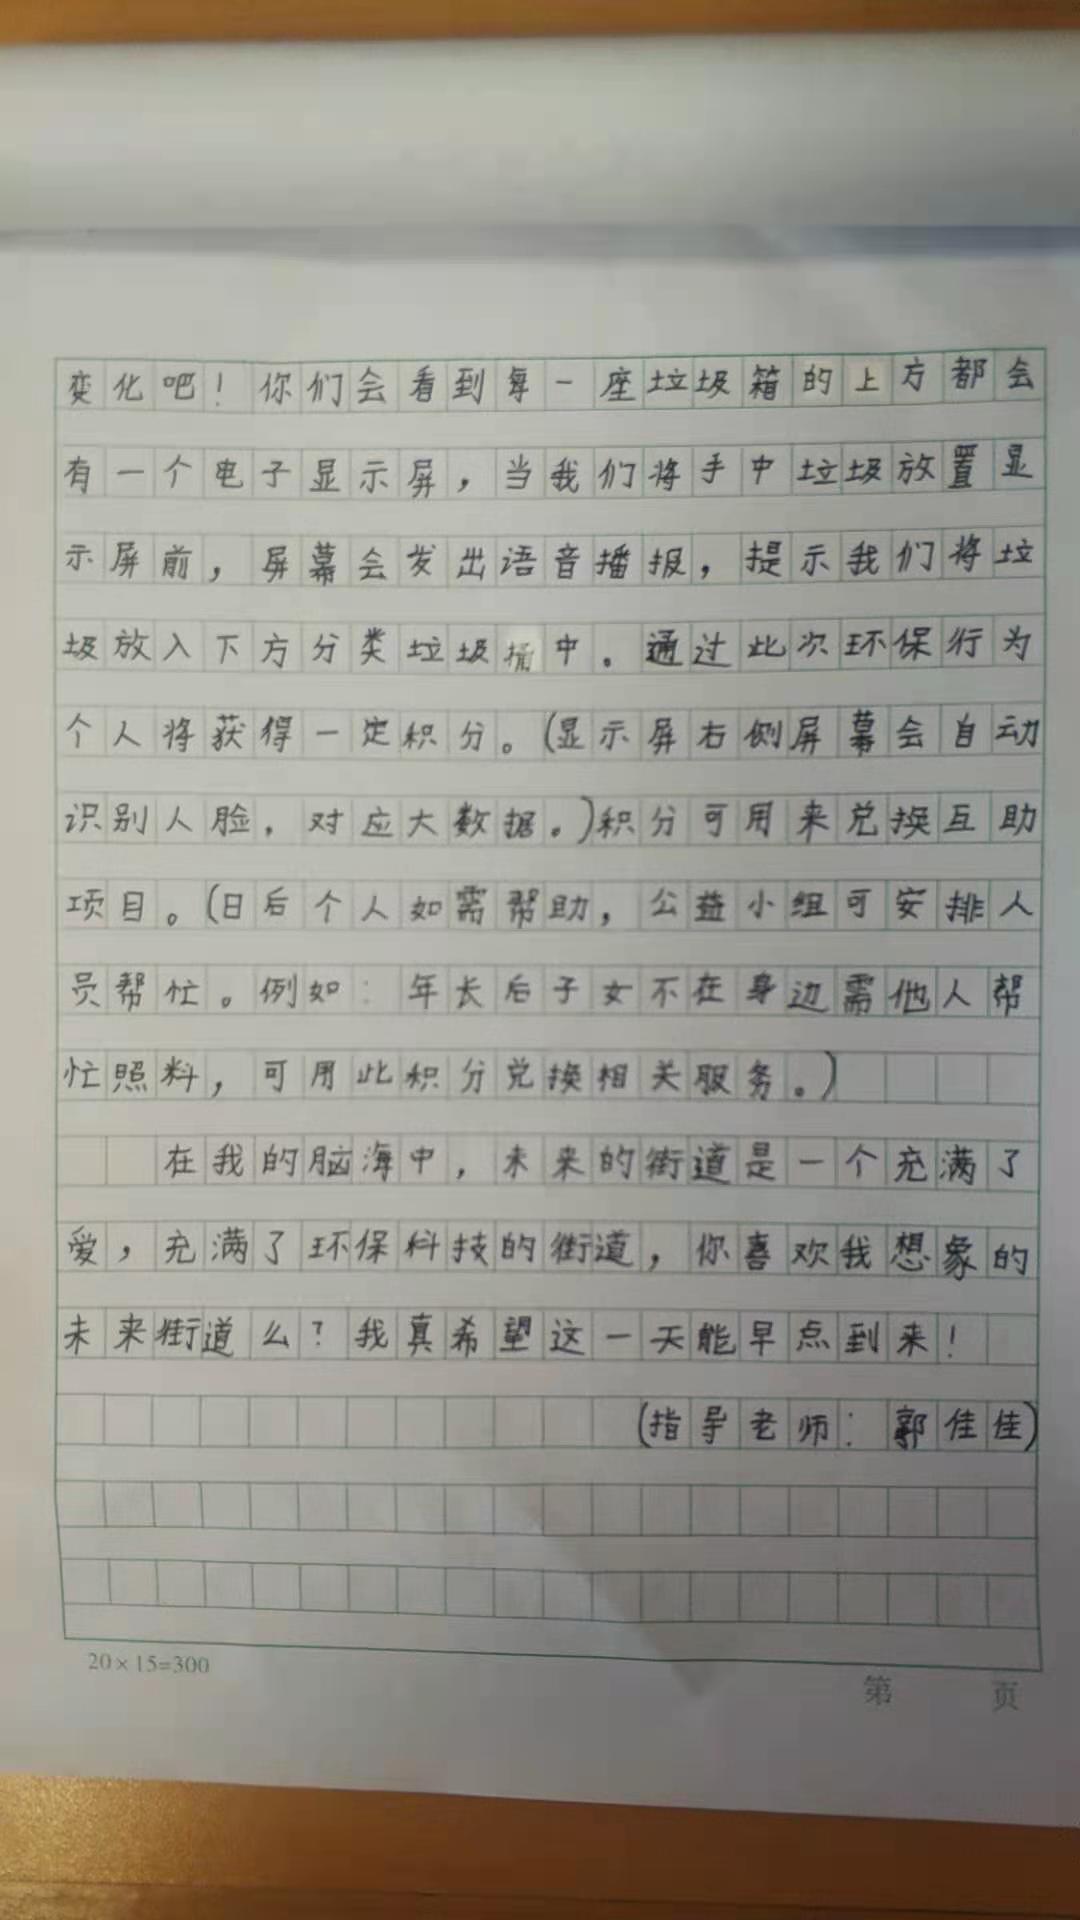 变化吧！你们会看到每一座垃圾箱的上方都会
有一个电子显示屏，当我们将手中垃圾放置显
示屏前，屏幕会发出语音播报，提示我们将垃
圾放入下方分类垃圾桶中。通过此次环保行为
个人将获得一定积分。(显示屏右侧屏幕会自动
识别人脸，对应大数据。)积分可用来兑换互助
项目。(日后个人如需帮助，公益小组可安排人
员帮忙。例如：年长后子女不在身边需他人帮
忙照料，可用此积分兑换相关服务。)
在我的脑海中，未来的街道是一个充满了
爱，充满了环保科技的街道，你喜欢我想象的
未来街道么？我真希望这一天能早点到来！
(指导老师：郭佳佳)
20×15=300
第 页